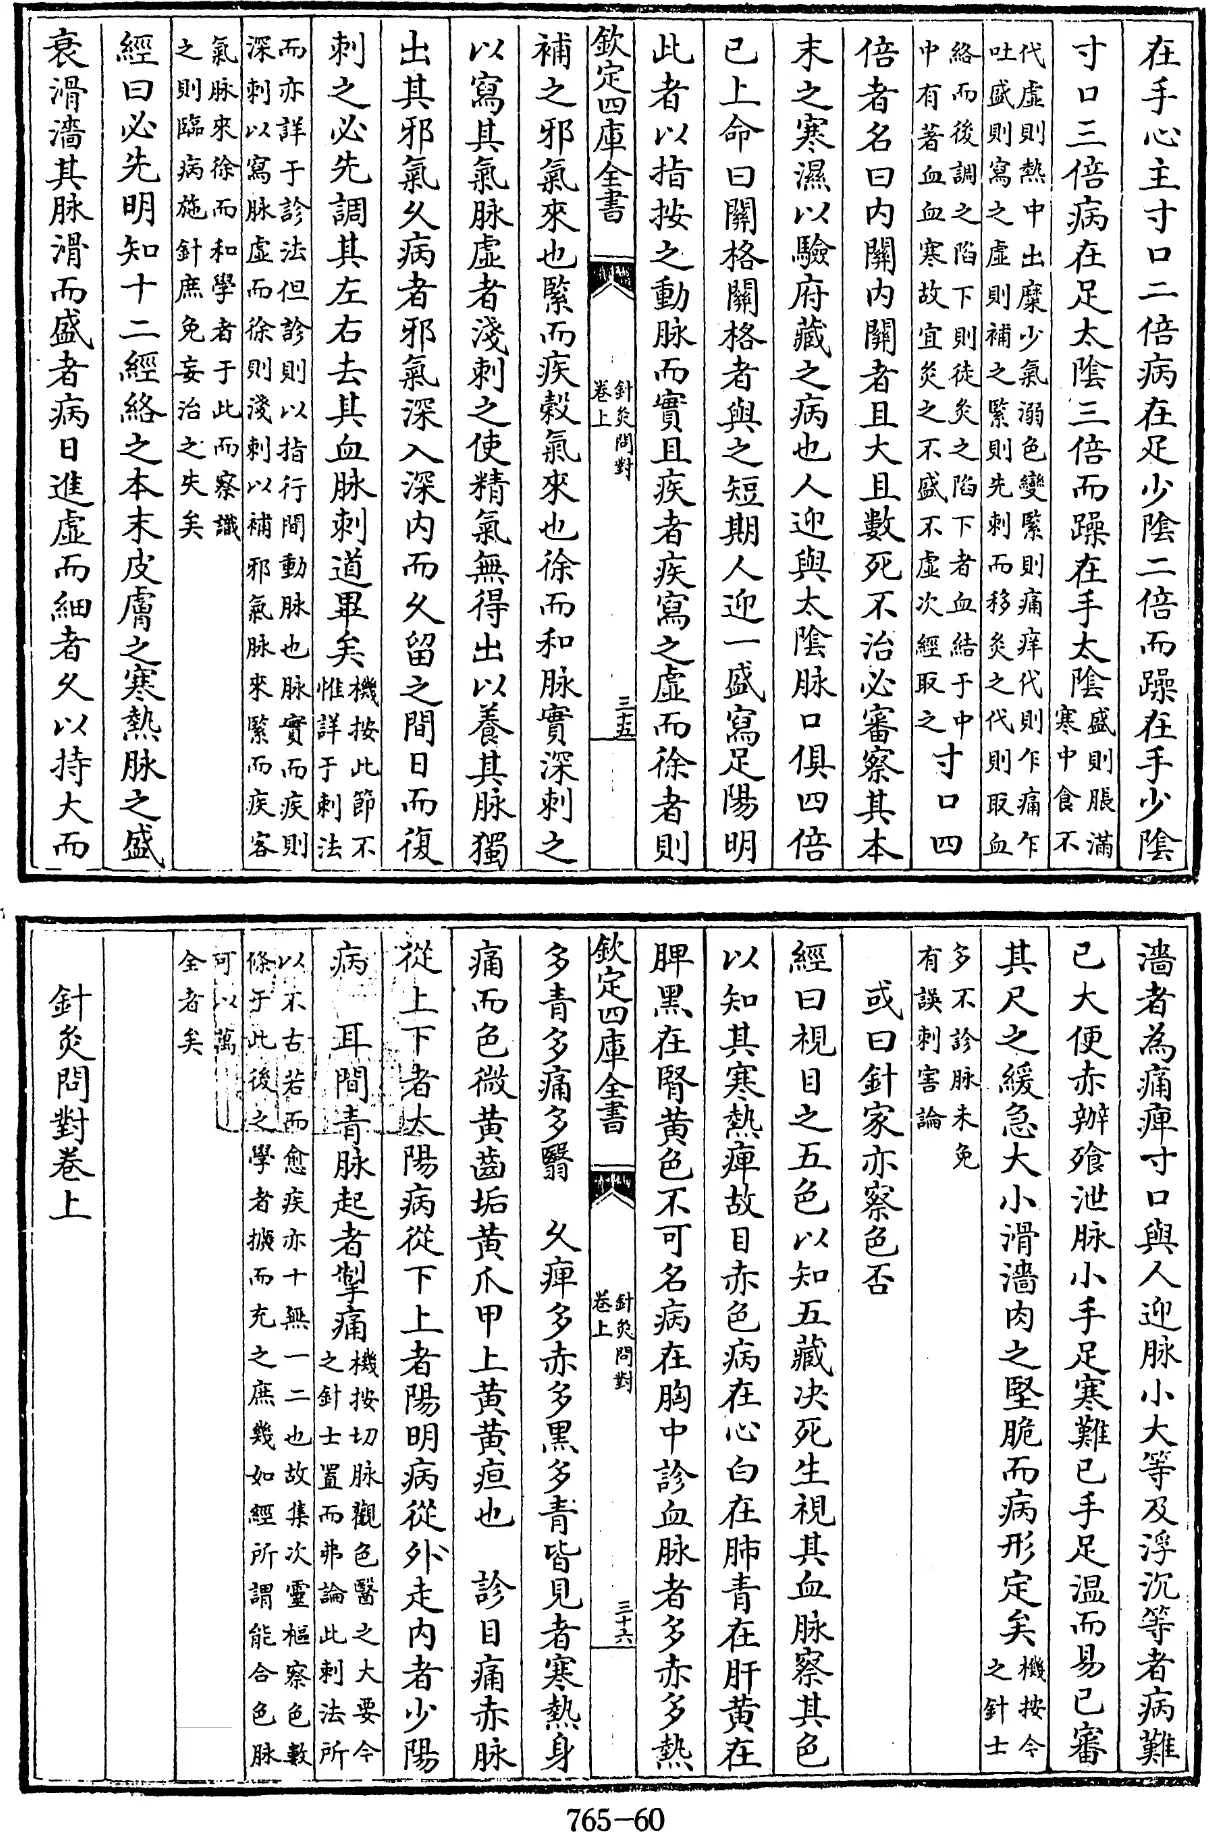 在手心主寸口二倍病在足少陰二倍而躁在手少陰
寸口三倍病在足太陰三倍而躁在手太陰盛則脹滿
寒中食不
代虛則熱中出糜少氣溺色變緊則痛痺代則乍痛乍
吐盛則寫之虛則補之緊則先刺而移灸之代則取血
絡而後調之陷下則徒灸之陷下者血結于中
中有著血血寒故宜灸之不盛不虛次經取之
寸口四
倍者名曰內關內關者且大且數死不治必審察其本
末之寒濕以驗府藏之病也人迎與太陰脉口俱四倍
已上命曰關格關格者與之短期人迎一盛寫足陽明
此者以指按之動脉而實且疾者疾寫之虛而徐者則
欽定四庫全書
針灸問對
卷上
三十五
補之邪氣來也緊而疾穀氣來也徐而和脉實深刺之
以寫其氣脉虛者淺刺之使精氣無得出以養其脉獨
出其邪氣久病者邪氣深入深內而久留之間日而復
刺之必先調其左右去其血脉刺道畢矣機按此節不
惟詳于刺法
而亦詳于診法但診則以指行間動脉也脉實而疾則
深刺以寫脉虛而徐則淺刺以補邪氣脉來緊而疾客
氣脉來徐而和學者于此而察識
之則臨病施針庶免妄治之失矣
經曰必先明知十二經絡之本末皮膚之寒熱脉之盛
衰滑濇其脉滑而盛者病日進虛而細者久以持大而
濇者為痛痺寸口與人迎脉小大等及浮沉等者病難
已大便赤瓣飱泄脉小手足寒難已手足溫而易已審
其尺之緩急大小滑濇肉之堅脆而病形定矣機按今
之針士
多不診脉未免
有誤刺害論
或曰針家亦察色否
經曰視目之五色以知五藏決死生視其血脉察其色
以知其寒熱痺故目赤色病在心白在肺青在肝黃在
脾黑在腎黃色不可名病在胸中診血脉者多赤多熱
欽定四庫全書
針灸問對
卷上
三十六
多青多痛多黳　久痺多赤多黑多青皆見者寒熱身
痛而色微黃齒垢黃爪甲上黃黃疸也　診目痛赤脉
從上下者太陽病從下上者陽明病從外走內者少陽
病　耳間青脉起者掣痛機按切脉觀色醫之大要今
之針士置而弗論此刺法所
以不古若而愈疾亦十無一二也故集次靈樞察色數
條于此後之學者擴而充之庶幾如經所謂能合色脉
可以萬
全者矣
針灸問對卷上
765-60